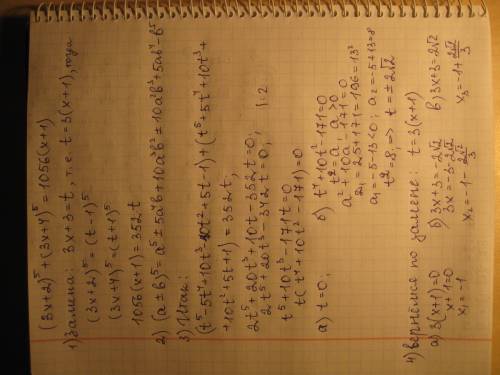 (3x+2)⁵ + (3x+4)⁵ = 1056(x+1)
1) Замена: 3x+3=t, т.е. t=3(x+1), тогда
(3x+2)⁵ = (t-1)⁵
(3x+4)⁵ = (t+1)⁵
1056(x+1) = 352t
2) (a±b)⁵ = a⁵ ± 5a⁴b + 10a³b² ± 10a²b³ + 5ab⁴ - b⁵
3) Итак:
(t⁵ - 5t⁴ + 10t³ - 10t² + 5t - 1) + (t⁵ + 5t⁴ + 10t³ +
+ 10t² + 5t + 1) = 352t,
2t⁵ + 20t³ + 10t - 352t = 0;
2t⁵ + 20t³ - 342t = 0, |:2
t⁵ + 10t³ - 171t = 0
t(t⁴ + 10t² - 171) = 0
а) t = 0;
б) t⁴ + 10t² - 171 = 0
t² = a a > 0
a² + 10a - 171 = 0
= 25 + 171 = 196 = 13²
a₁ = -5-13 < 0; a₂ = -5+13 = 8
t² = 8; => t = ±2√2
4) Вернёмся по замене: t = 3(x+1)
а) 3(x+1) = 0
x+1 = 0
x₁ = -1
б) 3x+3 = -2√2
3x = -3-2√2
x₂ = -1 - 2√2/3
в) 3x+3 = 2√2
x₃ = -1 + 2√2/3